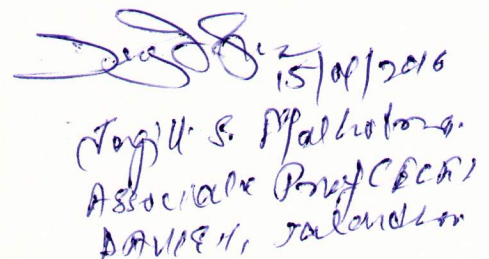 15/04/2016
Jagjit S. Malhotra.
Associate Prof (ECE)
DAVIET, Jalandhar